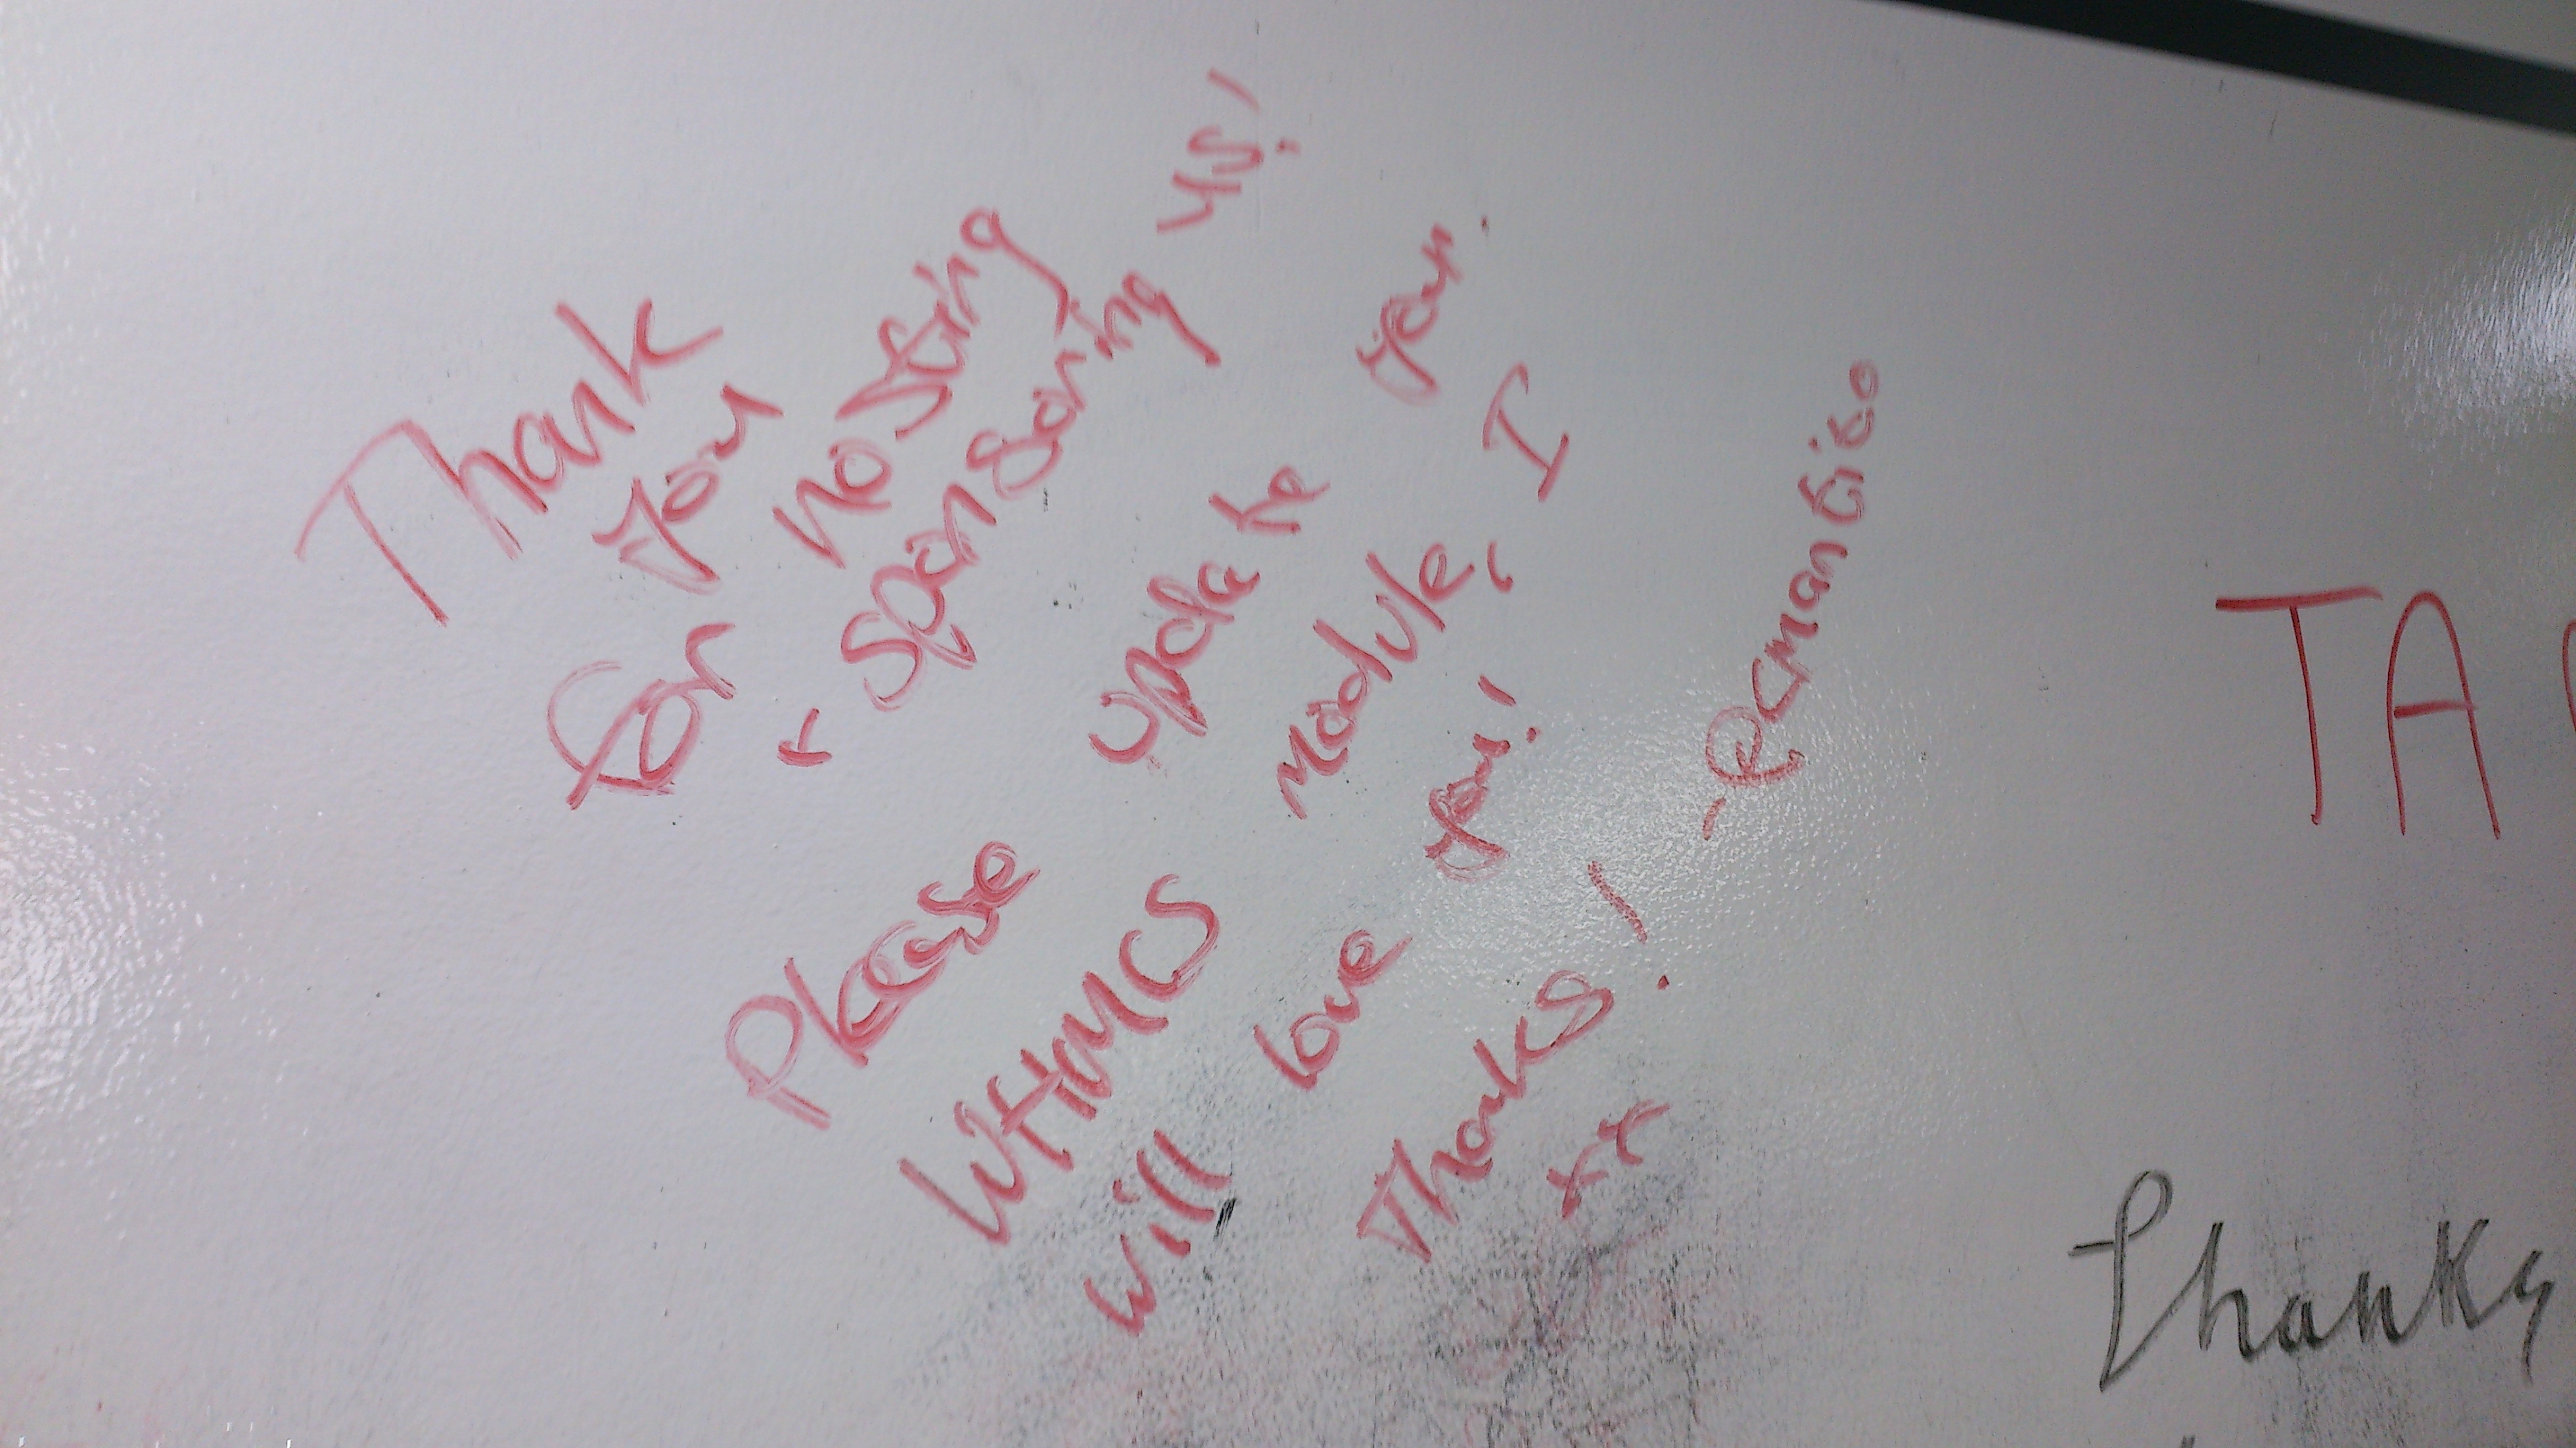 Thank you
for hosting
+ sponsoring us!
Please update your
WHMCS module, I
will love you!
Thanks!
xx
TA
Thanks